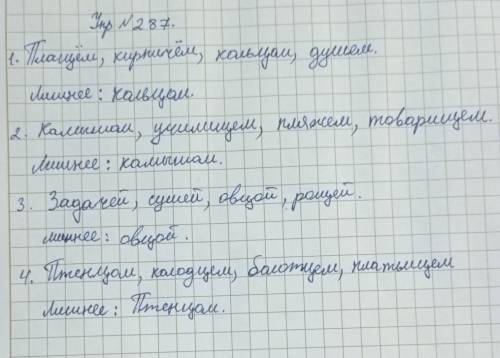 Упр №287.
1. Плащём, кирпичём, кольцом, душем.
Лишнее: кольцом.
2. Камышом, училищем, пляжем, товарищем.
Лишнее: камышом.
3. Задачей, сушей, овцой, рощей.
лишнее: овцой.
4. Птенцом, колодцем, болотцем, платьицем
Лишнее: Птенцом.